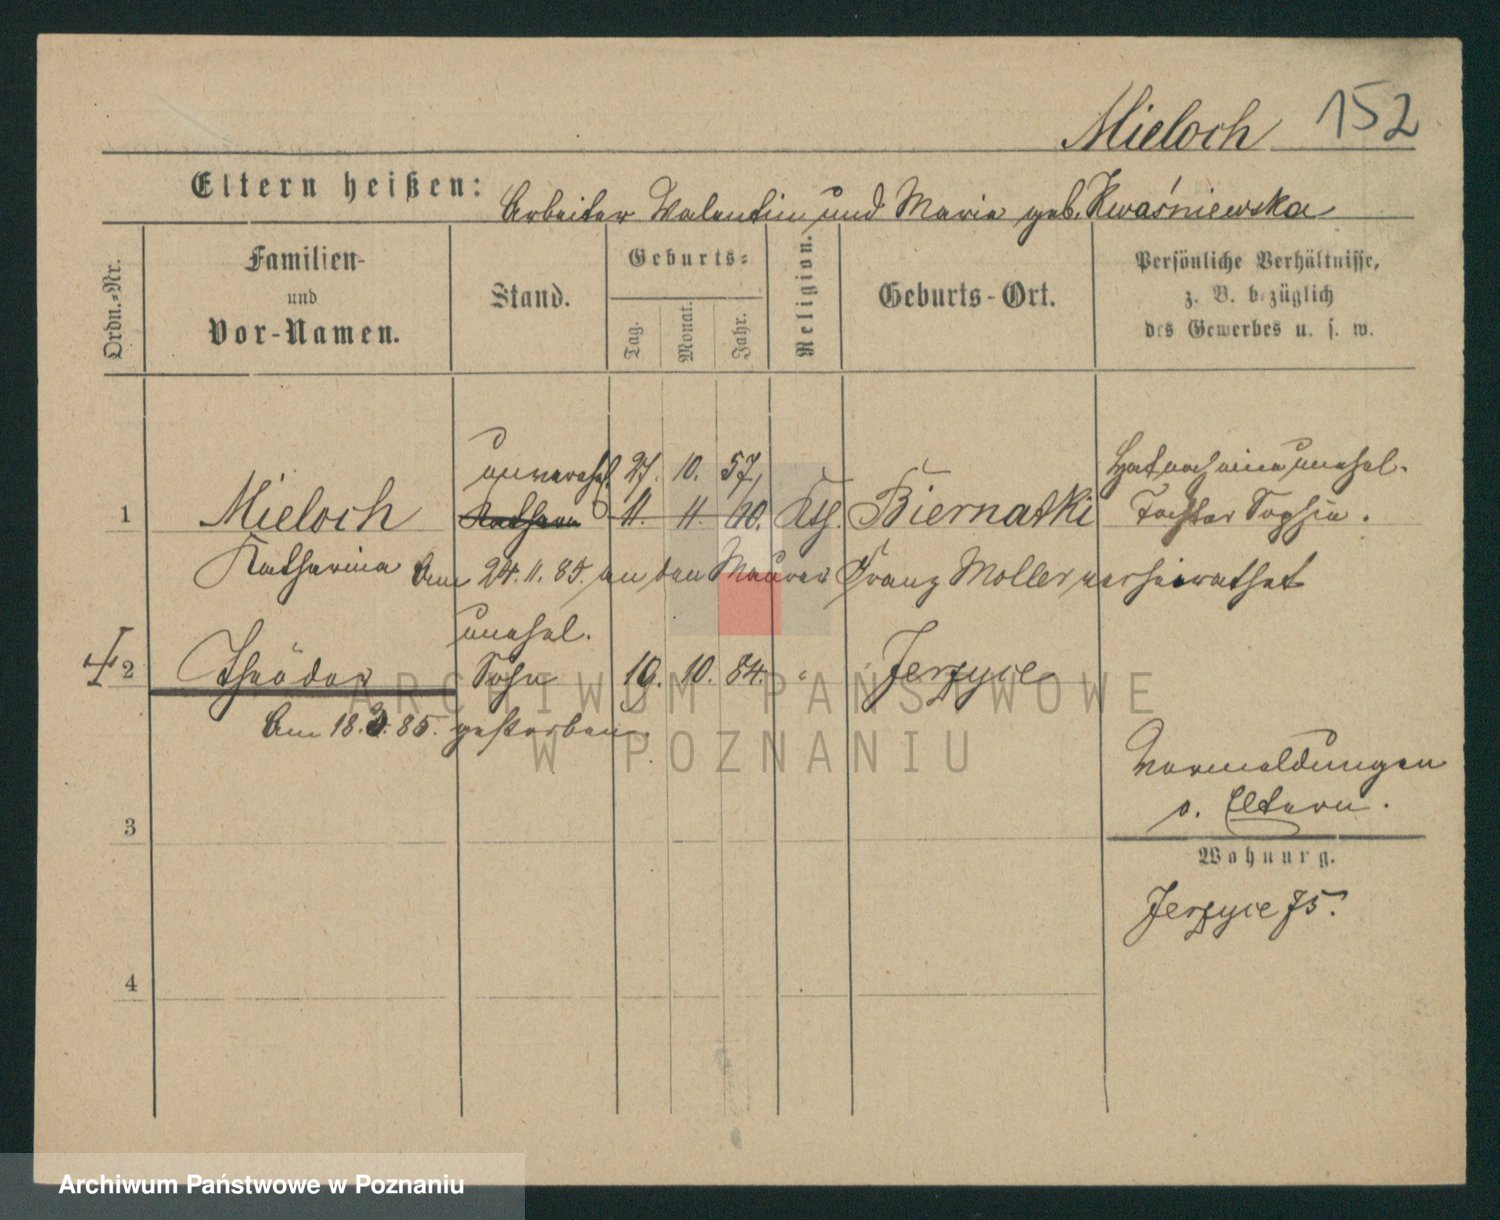 Mieloch 152
Eltern heißen: Arbeiter Valentin und Marie geb. Kwaśniewska
Ordn.-Nr.
Familien-
und
Vor-Namen.
Stand.
Geburts-
Tag.
Monat.
Jahr.
Religion.
Geburts-Ort.
Persönliche Verhältnisse,
z. B. bezüglich
des Gewerbes u. s. w.
unverehel. 27. 10. 57. Hat noch eine unehel.
1 Mieloch 11. 11. 60. Kth. Biernatki Tochter Sophie.
Katharina Am 24. 11. 85. an den Maurer Franz Moller verheirathet
unehel.
2 Theodor Sohn 19. 10. 84. " Jerzyce
Am 18. 3. 85. gestorben.
Vormeldungen
s. Eltern.
3
Wohnung.
Jerzyce 75.
4
ARCHIWUM PAŃSTWOWE
W POZNANIU
Archiwum Państwowe w Poznaniu